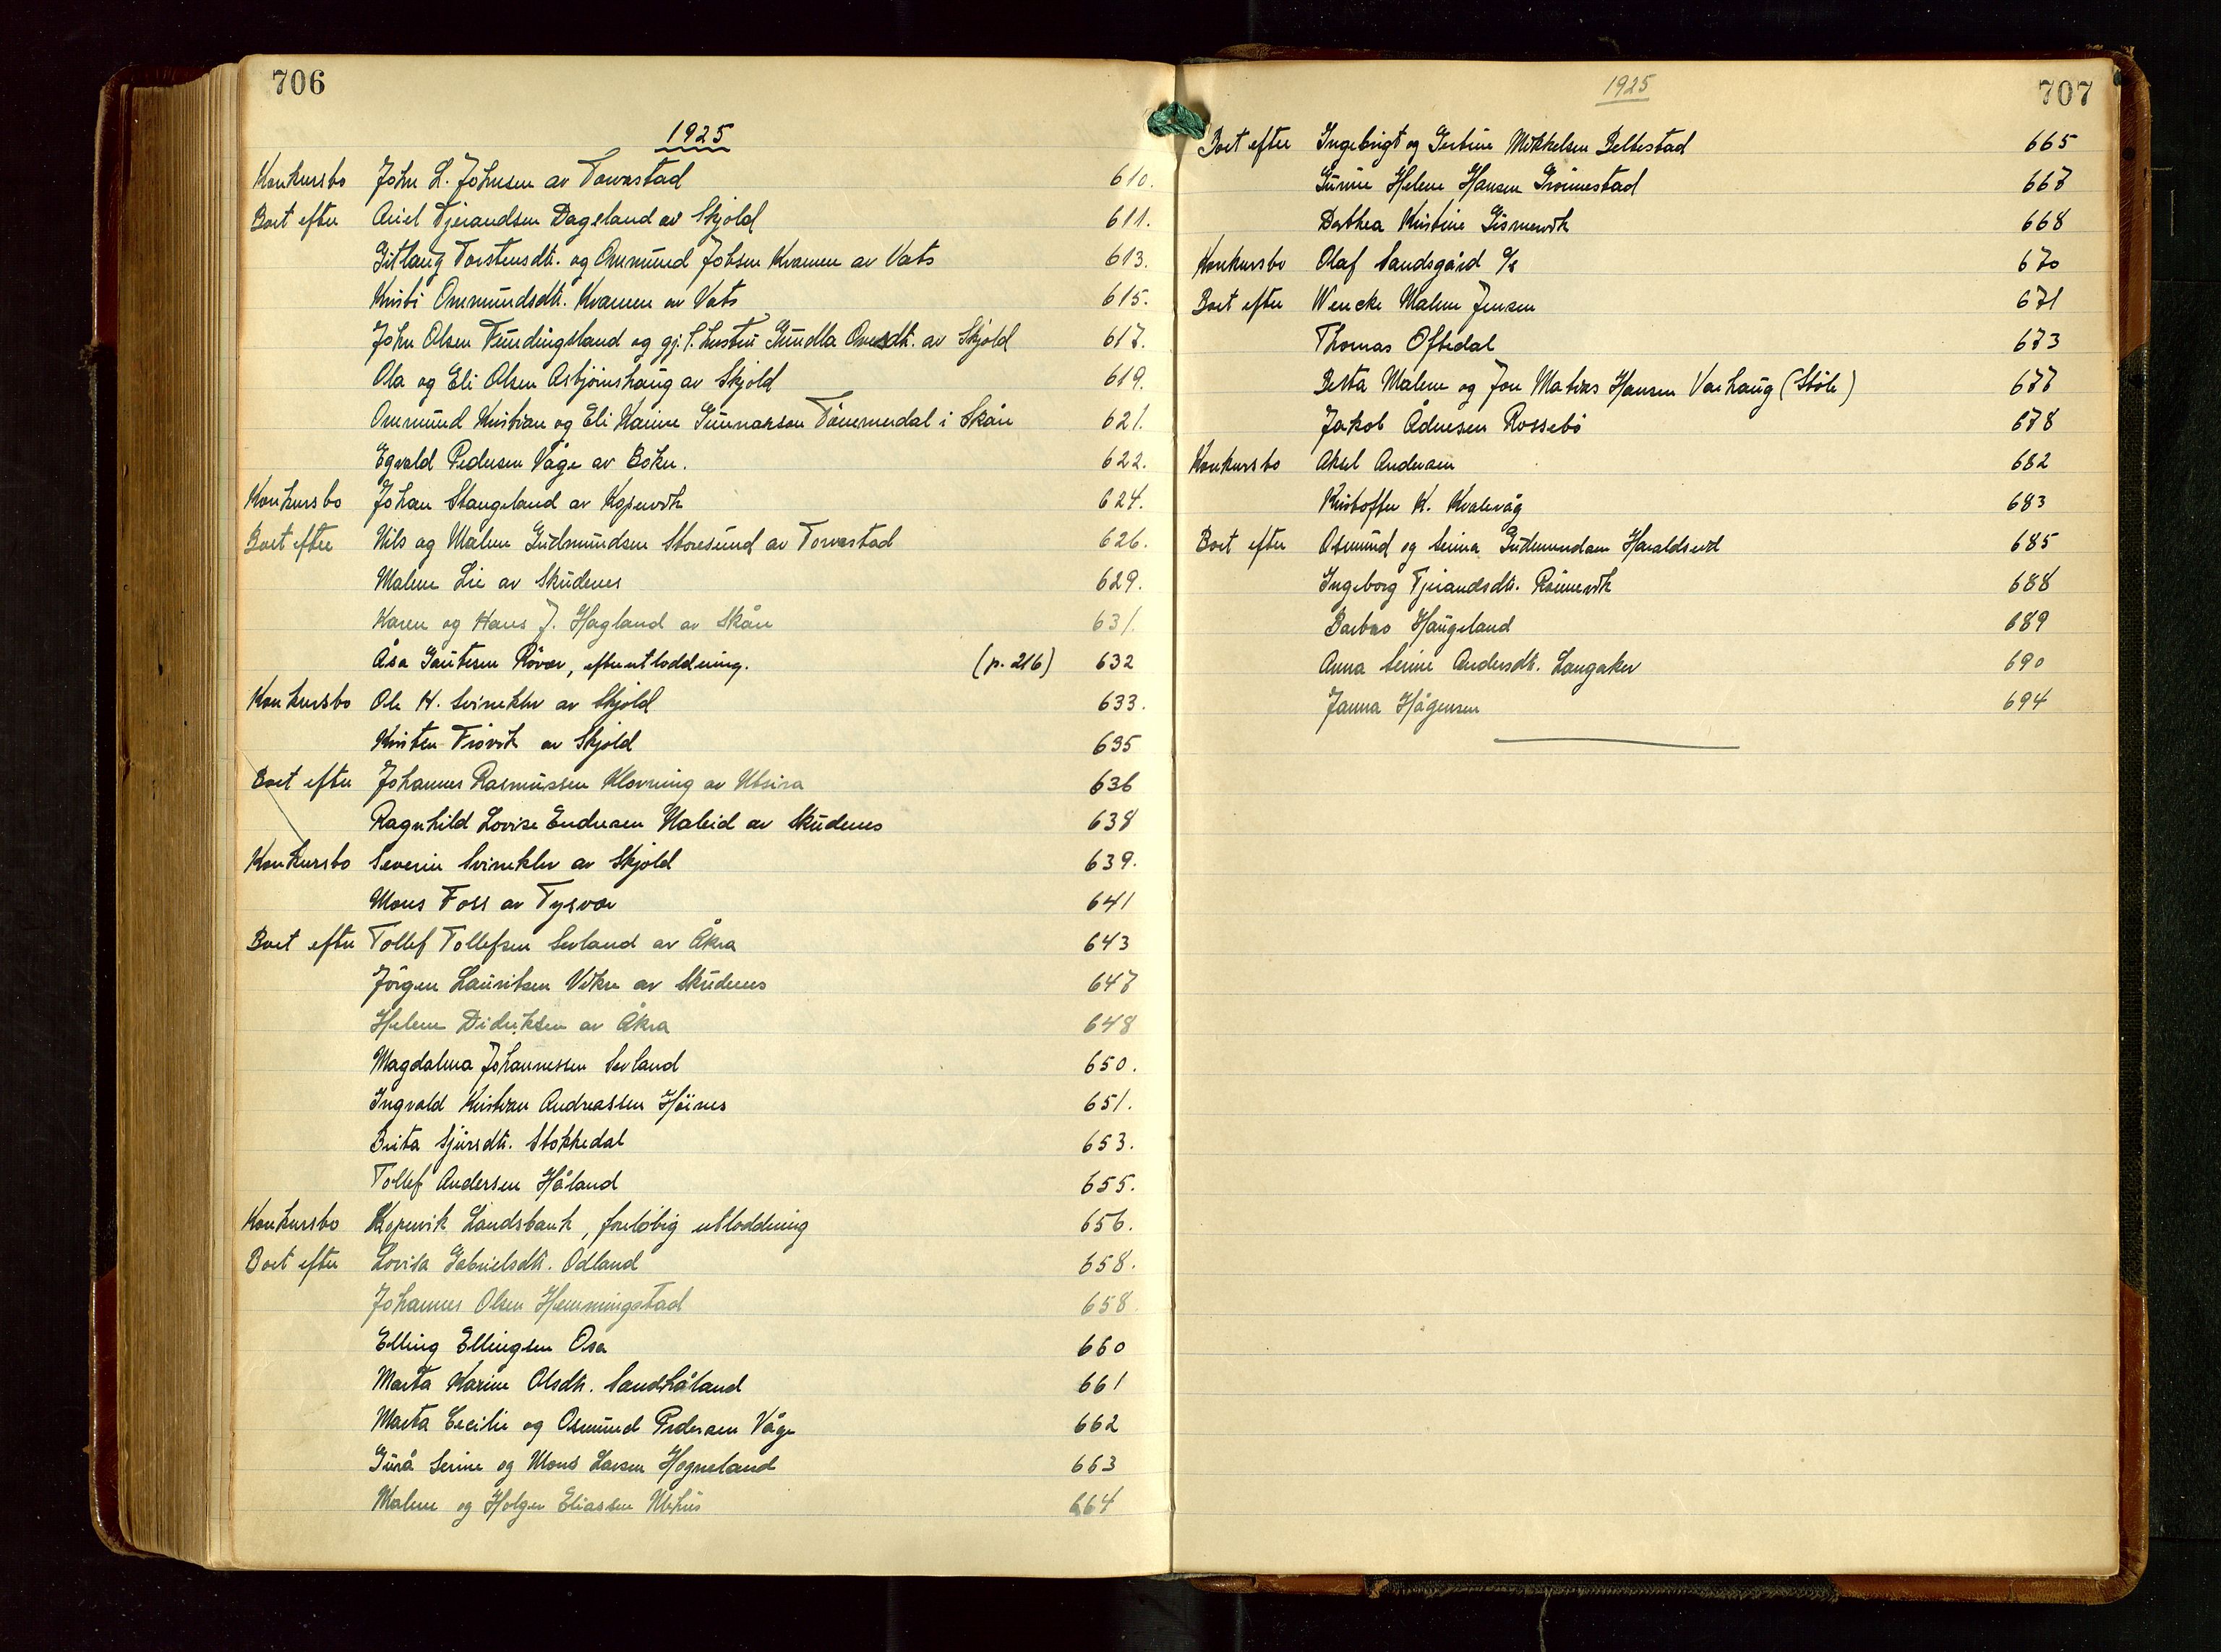 706
1925
Konkursbo John L. Johnsen av Torvastad 610.
Boet efter Ariel Tjerandsen Dageland av Skjold 611.
Gitlaug Torstensdtr. og Ommund Jobsen Kvamen av Vats 613.
Kristi Ommundsdtr. Kvamen av Vats 615.
John Olsen Fundingsland og gj. l. hustru Gundla Ovesdtr. av Skjold 617.
Ola og Eli Olsen Asbjörnshaug av Skjold 619.
Ommund Kristian og Eli Karine Gunnarson Tömmerdal i Skåre 621.
Egvald Pedersen Våge av Bokn. 622.
Konkursbo Johan Stangeland av Kopervik 624.
Boet efter Nils og Malene Gudmundsen Storesund av Torvastad 626.
Malene Lie av Skudenes 629.
Karen og Hans J. Hagland av Skåre 631.
Åsa Gautesen Röver, efterutloddning. (p. 216) 632
Konkursbo Ole H. Svineklev av Skjold 633.
Kristen Frövik av Skjold 635
Boet efter Johannes Rasmussen Klovning av Utsira 636
Ragnhild Lovise Endresen Naleid av Skudenes 638
Konkursbo Severin Svineklev av Skjold 639.
Mons Foss av Tysvær 641
Boet efter Tollef Tollefsen Sevland av Åkra 643
Jörgen Lauritsen Vikre av Skudenes 647
Helene Didriksen av Åkra 648
Magdalena Johannessen Sevland 650.
Ingvald Kristian Andreassen Höines 651.
Brita Sjursdtr. Stokkedal 653.
Tollef Andersen Håland 655.
Konkursbo Kopervik Landsbank, foreløbig utloddning 656.
Boet efter Lovisa Gabrielsdtr. Odland 658.
Johannes Olsen Hemmingstad 658.
Elling Ellingsen Osa 660
Marta Karine Olsdtr. Sandhåland 661
Marta Cecilie og Osmund Pedersen Våge 662
Gurå Serine og Mons Larsen Hogneland 663
Malene og Holger Eliassen Mehus 664
1925
707
Boet efter Ingebrigt og Gurine Mikkelsen Beltestad 665
Gurine Helene Hansen Grönnestad 667
Dorthea Kristine Gismervik 668
Konkursbo Olaf Sandsgård 670
Boet efter Wencke Malene Jensen 671
Thomas Oftedal 673
Berta Malene og Jon Matias Hansen Varhaug (Stöle) 677
Jakob Ådnesen Rossebö 678
Konkursbo Aksel Andersen 682
Kristoffer K. Kvalevåg 683
Boet efter Osmund og Serina Gudmundsen Haraldseid 685
Ingeborg Tjerandsdtr. Röinevik 688
Barbro Haugeland 689
Anna Serine Andersdtr. Langaker 690
Janna Hågensen 694